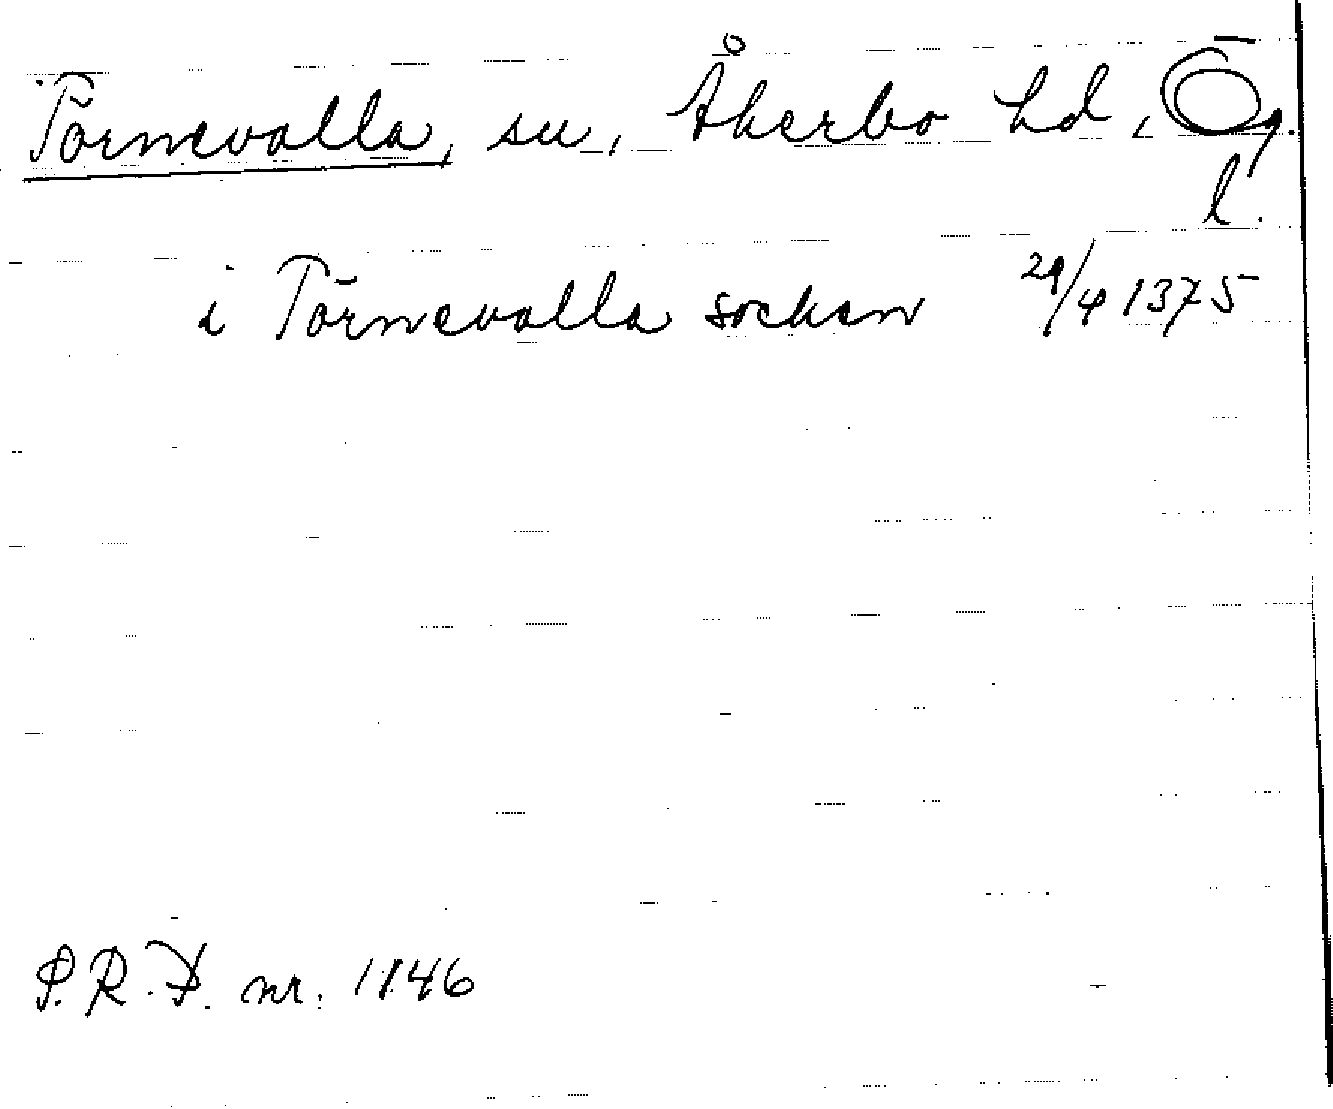 Törnevalla, sn, Åkerbo hd, Ög.
l.
i Törnevalla socken 29/4 1375
P.R.P. nr. 1146